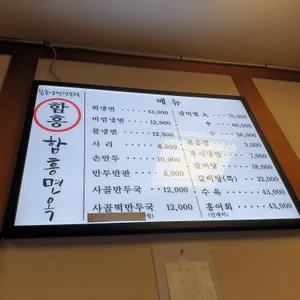 함흥
함흥면옥
메뉴
회냉면 13,000
비빔냉면 12,000
물냉면 12,000
사리 6,000
손만두 10,000
만두반판 5,000
사골만두국 12,000
사골떡만두국 12,000
갈비찜 大 76,000
中 66,000
小 56,000
볶음밥 3,000
후식냉면 7,000
갈비탕 18,000
갈비탕(특) 22,000
수육 43,000
홍어회 43,000
(간재미)